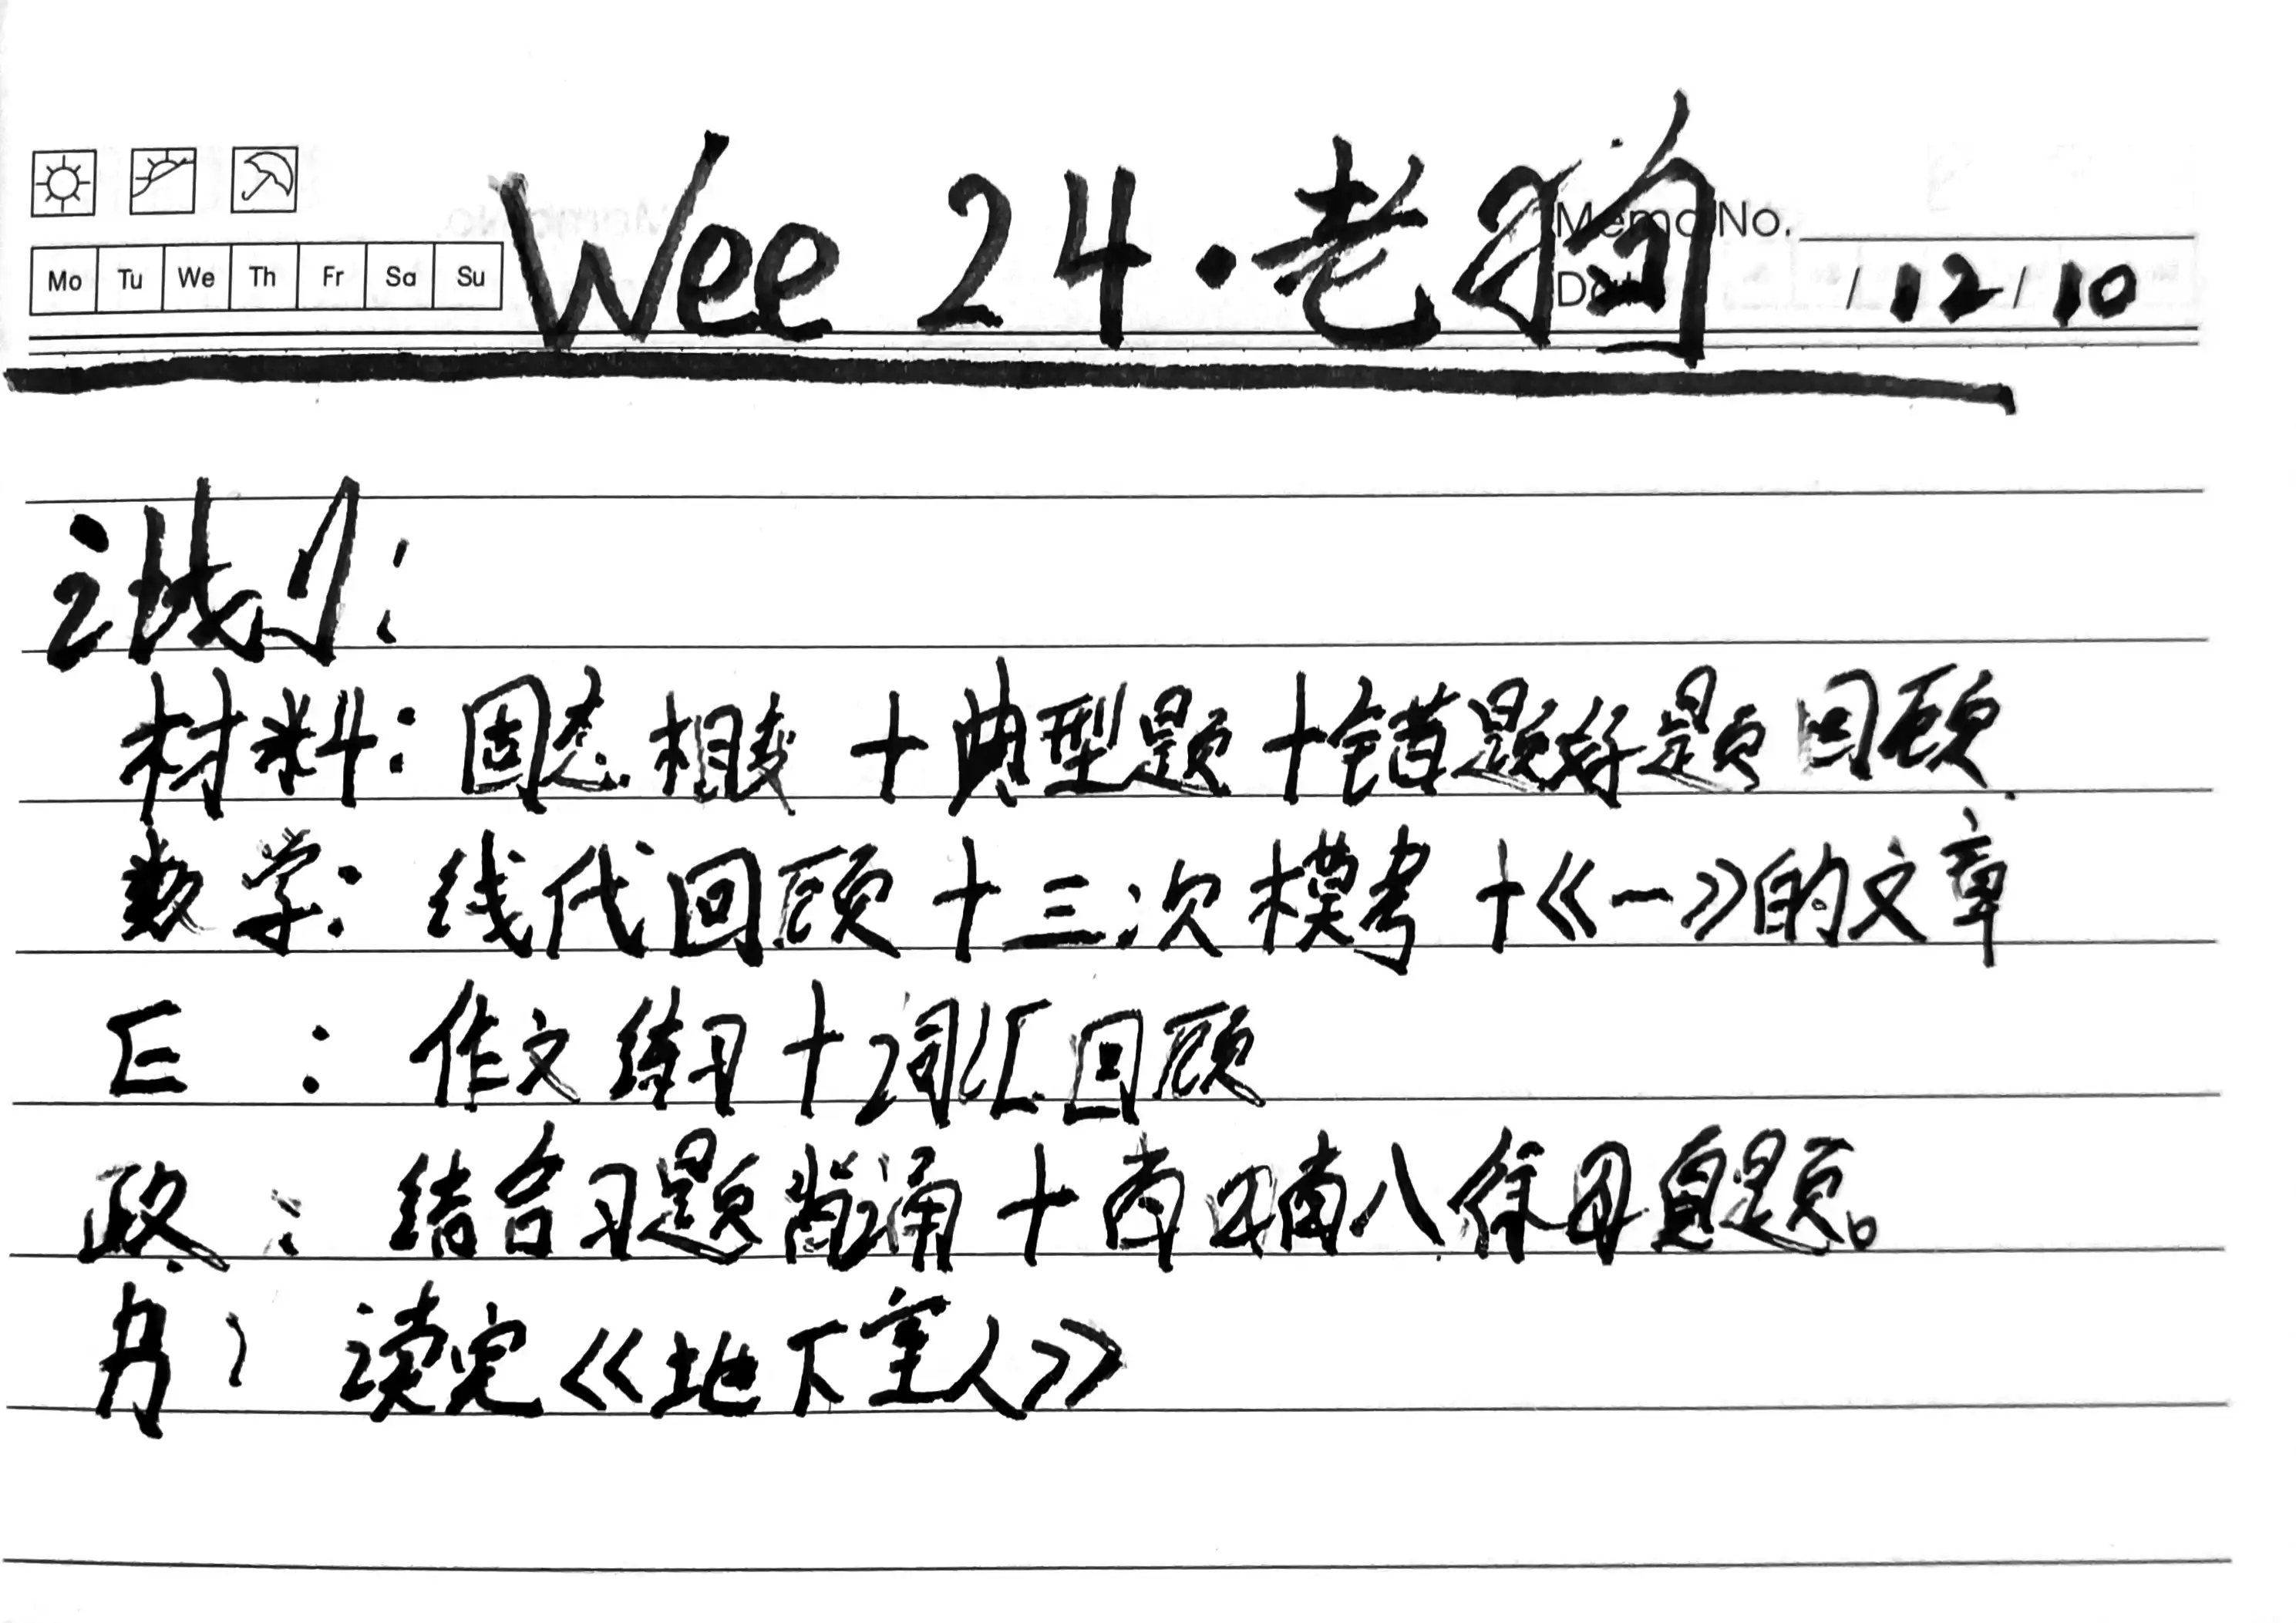 Wee 24·老狗
Memo No.
Mo Tu We Th Fr Sa Su
/ 12 / 10
计划:
材料: 固态相变 + 典型题 + 错题好题回顾
数学: 线代回顾 + 三次模考 + 《一》的文章
E : 作文练习 + 词汇回顾
政 : 结合习题背诵 + 八 题。
书: 读完《地下室人》